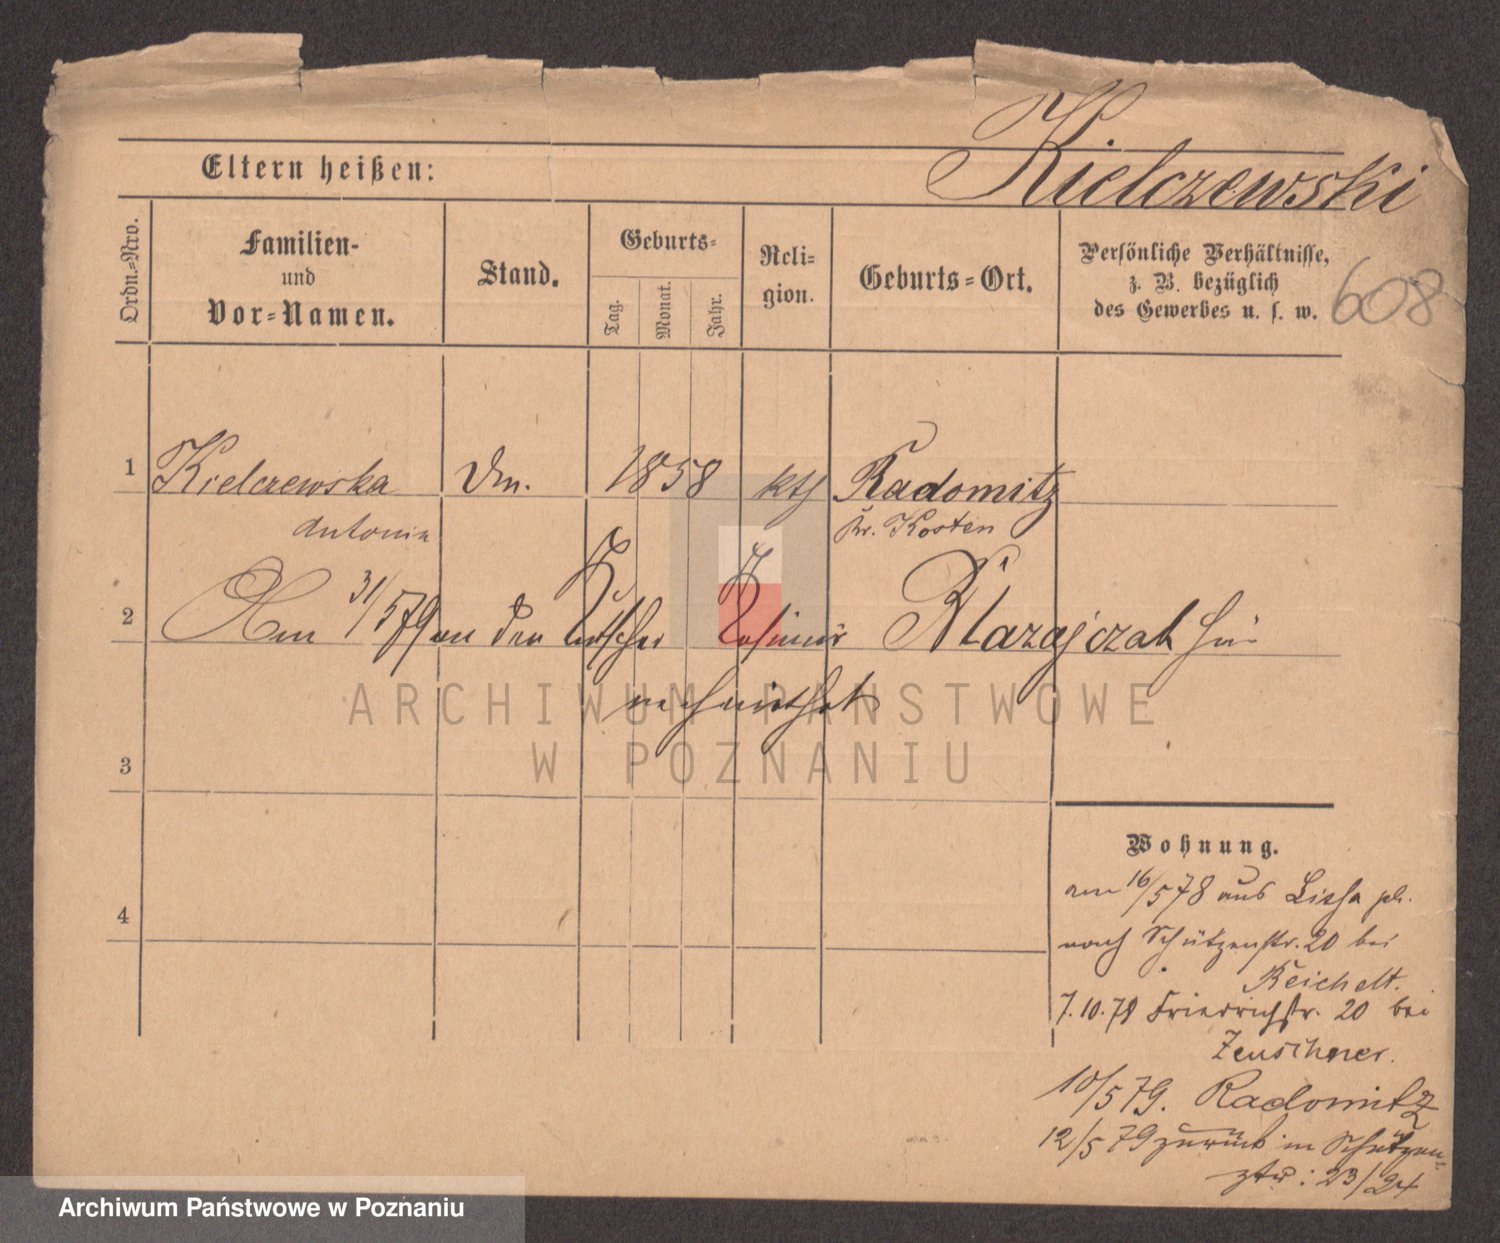 Kielczewski
Eltern heißen:
Ordn.=Nro.
Familien-
und
Vor=Namen.
Stand.
Geburts=
Tag.
Monat.
Jahr.
Reli=
gion.
Geburts=Ort.
Persönliche Verhältnisse,
z. B. bezüglich
des Gewerbes u. s. w.
608
1 Kielczewska Dm. 1858 kth Radomitz
Antonie Kr. Kosten
2 Am 31/5 79 an den Kutscher Kasimir Ratazajczak hier
verheirathet
3
4
ARCHIWUM PAŃSTWOWE
W POZNANIU
Wohnung.
am 16/5 78 aus Lissa
nach Schützenstr. 20 bei
Reichelt.
7.10.78 Friedrichstr. 20 bei
Zeuschner.
10/5 79. Radomitz
12/5 79 zurück in Schützen=
str: 23/24
Archiwum Państwowe w Poznaniu